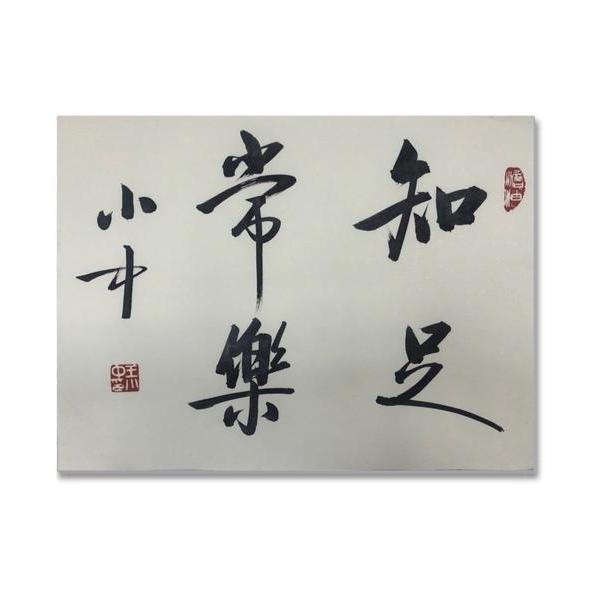 知足
常樂
小才